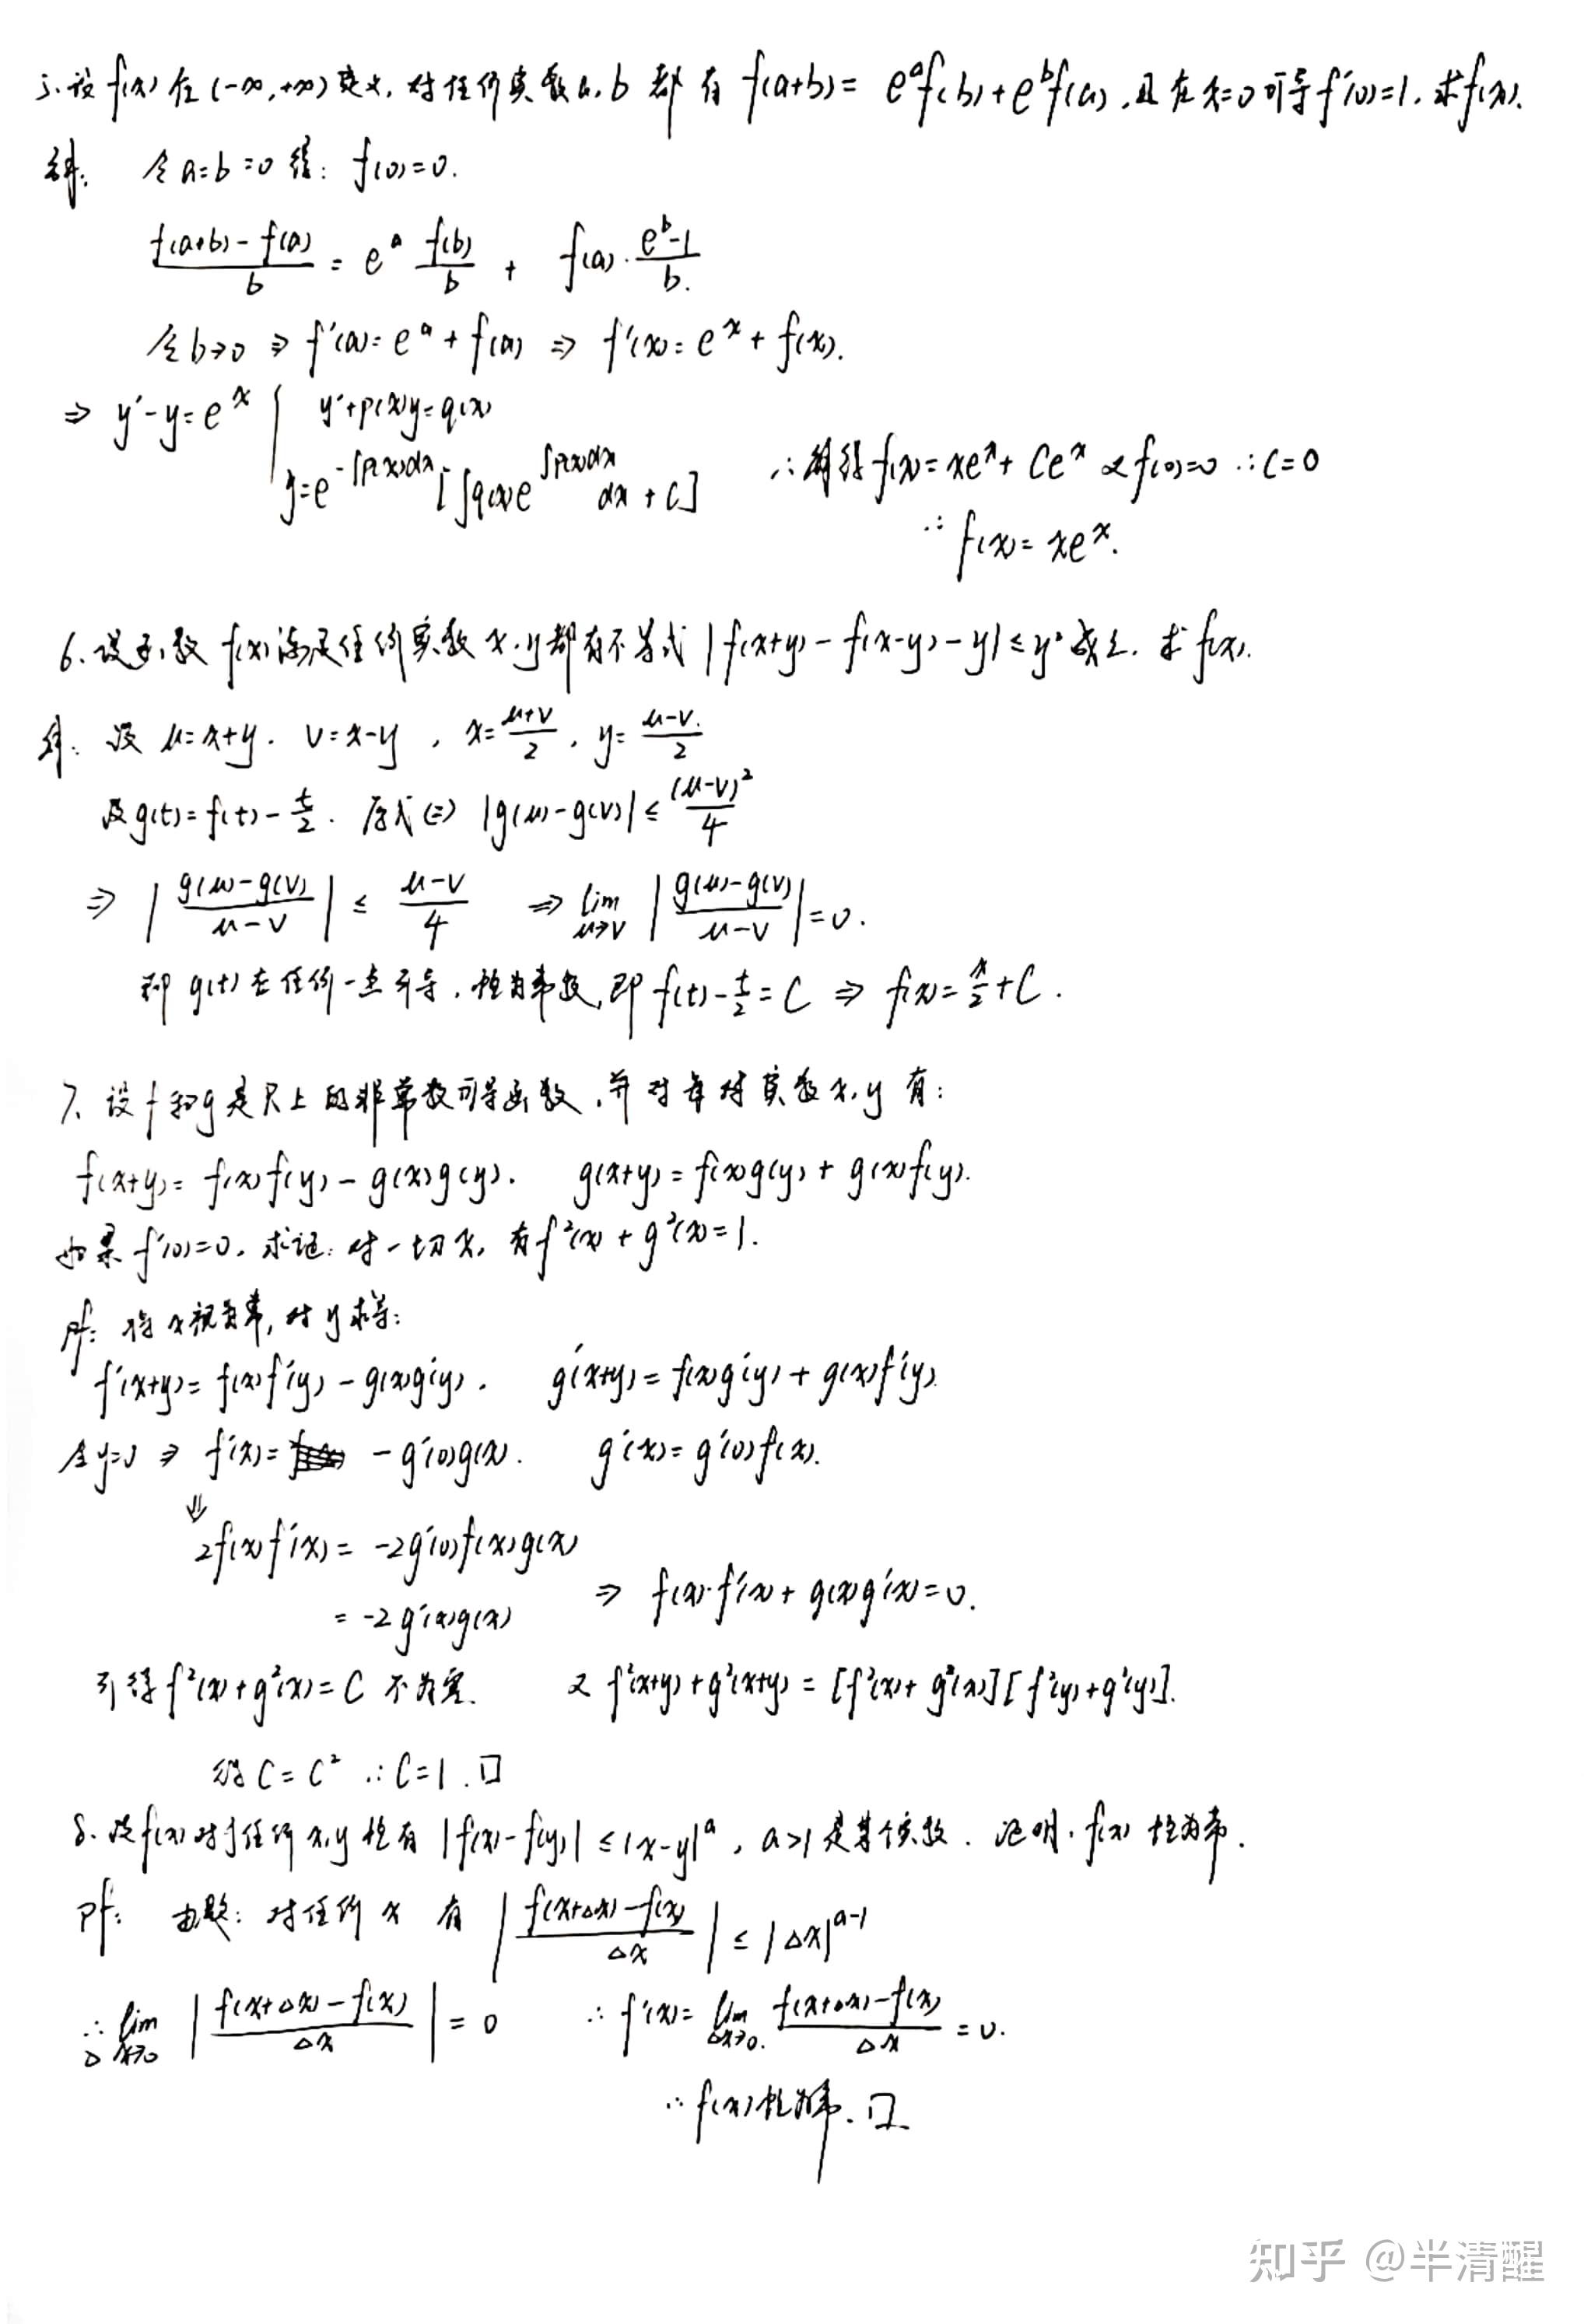 5.设f(x)在(-∞,+∞)定义,对任何实数a,b都有f(a+b)=e^a f(b)+e^b f(a),且在x=0可导f'(0)=1.求f(x).
解: 令a=b=0得: f(0)=0.
(f(a+b)-f(a))/b = e^a f(b)/b + f(a)·(e^b-1)/b.
令b→0 ⇒ f'(a)=e^a+f(a) ⇒ f'(x)=e^x+f(x).
⇒ y'-y=e^x | y'+p(x)y=q(x)
y=e^{-∫p(x)dx}[∫q(x)e^{∫p(x)dx}dx+C] ∴解得f(x)=xe^x+Ce^x 又f(0)=0 ∴C=0
∴f(x)=xe^x.
6.设函数f(x)满足任何实数x.y都有不等式|f(x+y)-f(x-y)-y|≤y²成立.求f(x).
解: 设 u=x+y. v=x-y, x=(u+v)/2, y=(u-v)/2
设g(t)=f(t)-t/2. 原式⇔ |g(u)-g(v)|≤(u-v)²/4
⇒ |(g(u)-g(v))/(u-v)| ≤ (u-v)/4 ⇒ lim_{u→v} |(g(u)-g(v))/(u-v)|=0.
即g(t)在任何一点可导,恒为常数,即f(t)-t/2=C ⇒ f(x)=x/2+C.
7.设f和g是R上的非常数可导函数,并对每对实数x,y有:
f(x+y)=f(x)f(y)-g(x)g(y). g(x+y)=f(x)g(y)+g(x)f(y).
如果f'(0)=0,求证:对一切x,有f²(x)+g²(x)=1.
pf: 将x视为常,对y求导:
f'(x+y)=f(x)f'(y)-g(x)g'(y). g'(x+y)=f(x)g'(y)+g(x)f'(y).
令y=0 ⇒ f'(x)= -g'(0)g(x). g'(x)=g'(0)f(x).
⇓
2f(x)f'(x)=-2g'(0)f(x)g(x)
=-2g'(x)g(x) ⇒ f(x)·f'(x)+g(x)g'(x)=0.
可得f²(x)+g²(x)=C 不为零. 又f²(x+y)+g²(x+y)=[f²(x)+g²(x)][f²(y)+g²(y)].
得C=C² ∴C=1.□
8.设f(x)对于任何x,y恒有|f(x)-f(y)|≤|x-y|^a, a>1是某个实数.证明.f(x)恒为常.
Pf: 由题:对任何x有 |(f(x+Δx)-f(x))/Δx| ≤ |Δx|^{a-1}
∴lim_{Δx→0} |(f(x+Δx)-f(x))/Δx|=0 ∴f'(x)=lim_{Δx→0.} (f(x+Δx)-f(x))/Δx=0.
∴f(x)恒为常.□
知乎 @半清醒